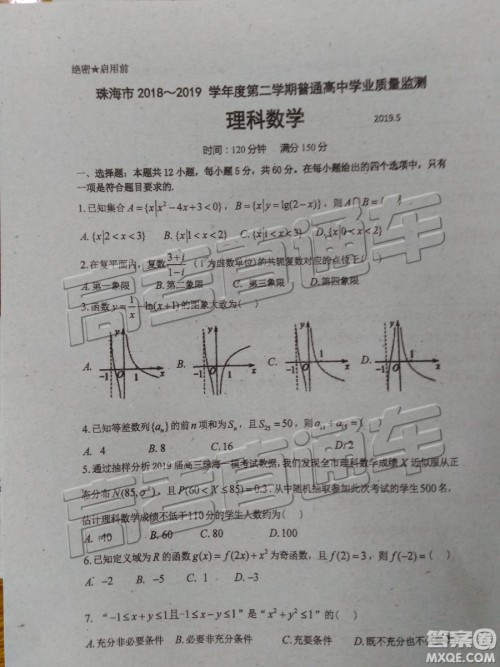 绝密★启用前
珠海市 2018～2019 学年度第二学期普通高中学业质量监测
理科数学
2019.5
时间：120分钟 满分150分
一、选择题：本题共12小题，每小题5分，共60分。在每小题给出的四个选项中，只有
一项是符合题目要求的.
1.已知集合 A={x|x²-4x+3<0}，B={x|y=lg(2-x)}，则 A∩B=( )
A.{x|2<x<3} B.{x|1<x<2} C.{x|1<x<3} D.{x|0<x<2}
2.在复平面内，复数 (3+i)/(1-i)（i为虚数单位）的共轭复数对应的点位于( )
A. 第一象限 B. 第二象限 C. 第三象限 D. 第四象限
3.函数 y=1/x-ln(x+1)的图象大致为( )
A. B. C. D.
y y y y
-1 O 1 x -1 O 1 x -1 O 1 x -1 O 1 x
4.已知等差数列{aₙ}的前n项和为Sₙ，且S₂₅=50，则
A. 4 B. 8 C.16 D.2
5.通过抽样分析2019届高三珠海一模考试数据，我们发现全市理科数学成绩 X 近似服从正
态分布N(85,σ²)，且P(60<X≤85)=0.3.从中随机抽取参加此次考试的学生500名，
估计理科数学成绩不低于110分的学生人数约为( )
A. 40 B. 60 C. 80 D. 100
6.已知定义域为 R 的函数 g(x)=f(2x)+x²为奇函数，且f(2)=3，则f(-2)=( )
A. -2 B. -5 C. 1 D. -3
7. “-1≤x+y≤1且-1≤x-y≤1”是“x²+y²≤1”的( )
A.充分非必要条件 B.必要非充分条件 C.充要条件 D.既不充分也不必
高考直通车
高考直通车
答案圈
MXQE.COM